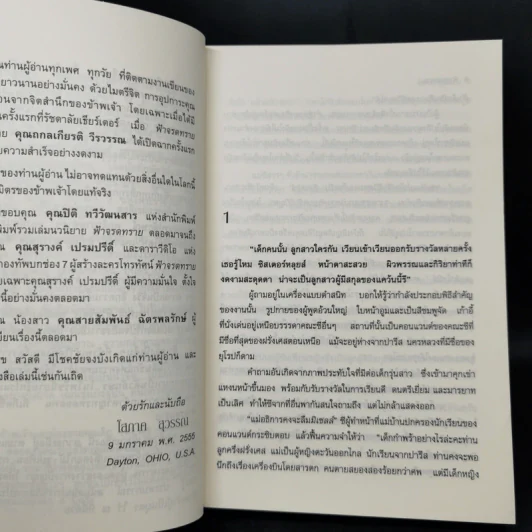 นท่านผู้อ่านทุกเพศ ทุกวัย ที่ติดตามงานเขียนของ
ยาวนานอย่างมั่นคง ด้วยไมตรีจิต การอุปการะคุณ
อนจากจิตสำนึกของข้าพเจ้า โดยเฉพาะเมื่อได้มี
นครั้งแรกที่รัชดาลัยเธียร์เตอร์ เมื่อ ฟ้าจรดทราย
ย คุณถกลเกียรติ วีรวรรณ ได้เปิดฉากครั้งแรก
ยความสำเร็จอย่างงดงาม
ของท่านผู้อ่าน ไม่อาจทดแทนด้วยสิ่งอื่นใดในโลกนี้
มิตรของข้าพเจ้าโดยแท้จริง
ขอบคุณ คุณปิติ ทวีวัฒนสาร แห่งสำนักพิมพ์
พิมพ์รวมเล่มนวนิยาย ฟ้าจรดทราย ตลอดมาจนถึง
ณ คุณสุรางค์ เปรมปรีดิ์ และดาราวิดีโอ แห่ง
กองทัพบกช่อง 7 ผู้สร้างละครโทรทัศน์ ฟ้าจรดทราย
ยเฉพาะคุณสุรางค์ เปรมปรีดิ์ ผู้มีความมั่นใจ ตั้งใจ
นี้อย่างมั่นคงตลอดมา
ณ น้องสาว คุณสายสัมพันธ์ ฉัตรพลรักษ์ ผู้
ขียนเรื่องนี้ตลอดมา
ข สวัสดี มีโชคชัยจงบังเกิดแก่ท่านผู้อ่าน และ
งสือเล่มนี้เช่นกันเถิด
ด้วยรักและนับถือ
โสภาค สุวรรณ
9 มกราคม พ.ศ. 2555
Dayton, OHIO, U.S.A.
1
"เด็กคนนั้น ลูกสาวใครกัน เวียนเข้าเวียนออกรับรางวัลหลายครั้ง
เธอรู้ไหม ซิสเตอร์หลุยส์ หน้าตาสะสวย ผิวพรรณและกิริยาท่าทีก็
งดงามสะดุดตา น่าจะเป็นลูกสาวผู้มีสกุลของแคว้นนี้รึ"
ผู้ถามอยู่ในเครื่องแบบดำสนิท บอกให้รู้ว่ากำลังประกอบพิธีสำคัญ
ของงานนั้น รูปกายของผู้พูดอ้วนใหญ่ ใบหน้าอูมและเป็นสีชมพูจัด เก้าอี้
ที่นั่งเด่นอยู่เหนือบรรดาคณะซีอื่นๆ สถานที่นั้นเป็นคอนแวนต์ของคณะชีที่
มีชื่อที่สุดของฝรั่งเศสตอนเหนือ แม้จะอยู่ห่างจากปารีส นครหลวงที่มีชื่อของ
ยุโรปก็ตาม
คำถามอันเกิดจากภาพประทับใจที่มีต่อเด็กรุ่นสาว ซึ่งเข้ามาคุกเข่า
แทนหน้าขั้นมอง พร้อมกับรับรางวัลในการเรียนดี ดนตรีเยี่ยม และมารยาท
เป็นเลิศ ทำให้ชีจากที่อื่นพากันสนใจถามถึง แต่ไม่กล้าแสดงออก
"แม่อธิการคงจะลืมมิเชลล์" ชีผู้ทำหน้าที่แม่บ้านปกครองนักเรียนของ
คอนแวนต์กระซิบตอบ แล้วฟื้นความจำให้ว่า "เด็กกำพร้าอย่างไรล่ะคะท่าน
ลูกครึ่งฝรั่งเศส แม่เป็นผู้หญิงตะวันออกไกล นักเรียนจากปารีส ท่านคงจะพอ
นึกถึงเรื่องเครื่องบินโดยสารตก คนตายสยองสองร้อยกว่าศพ แต่มีเด็กหญิง